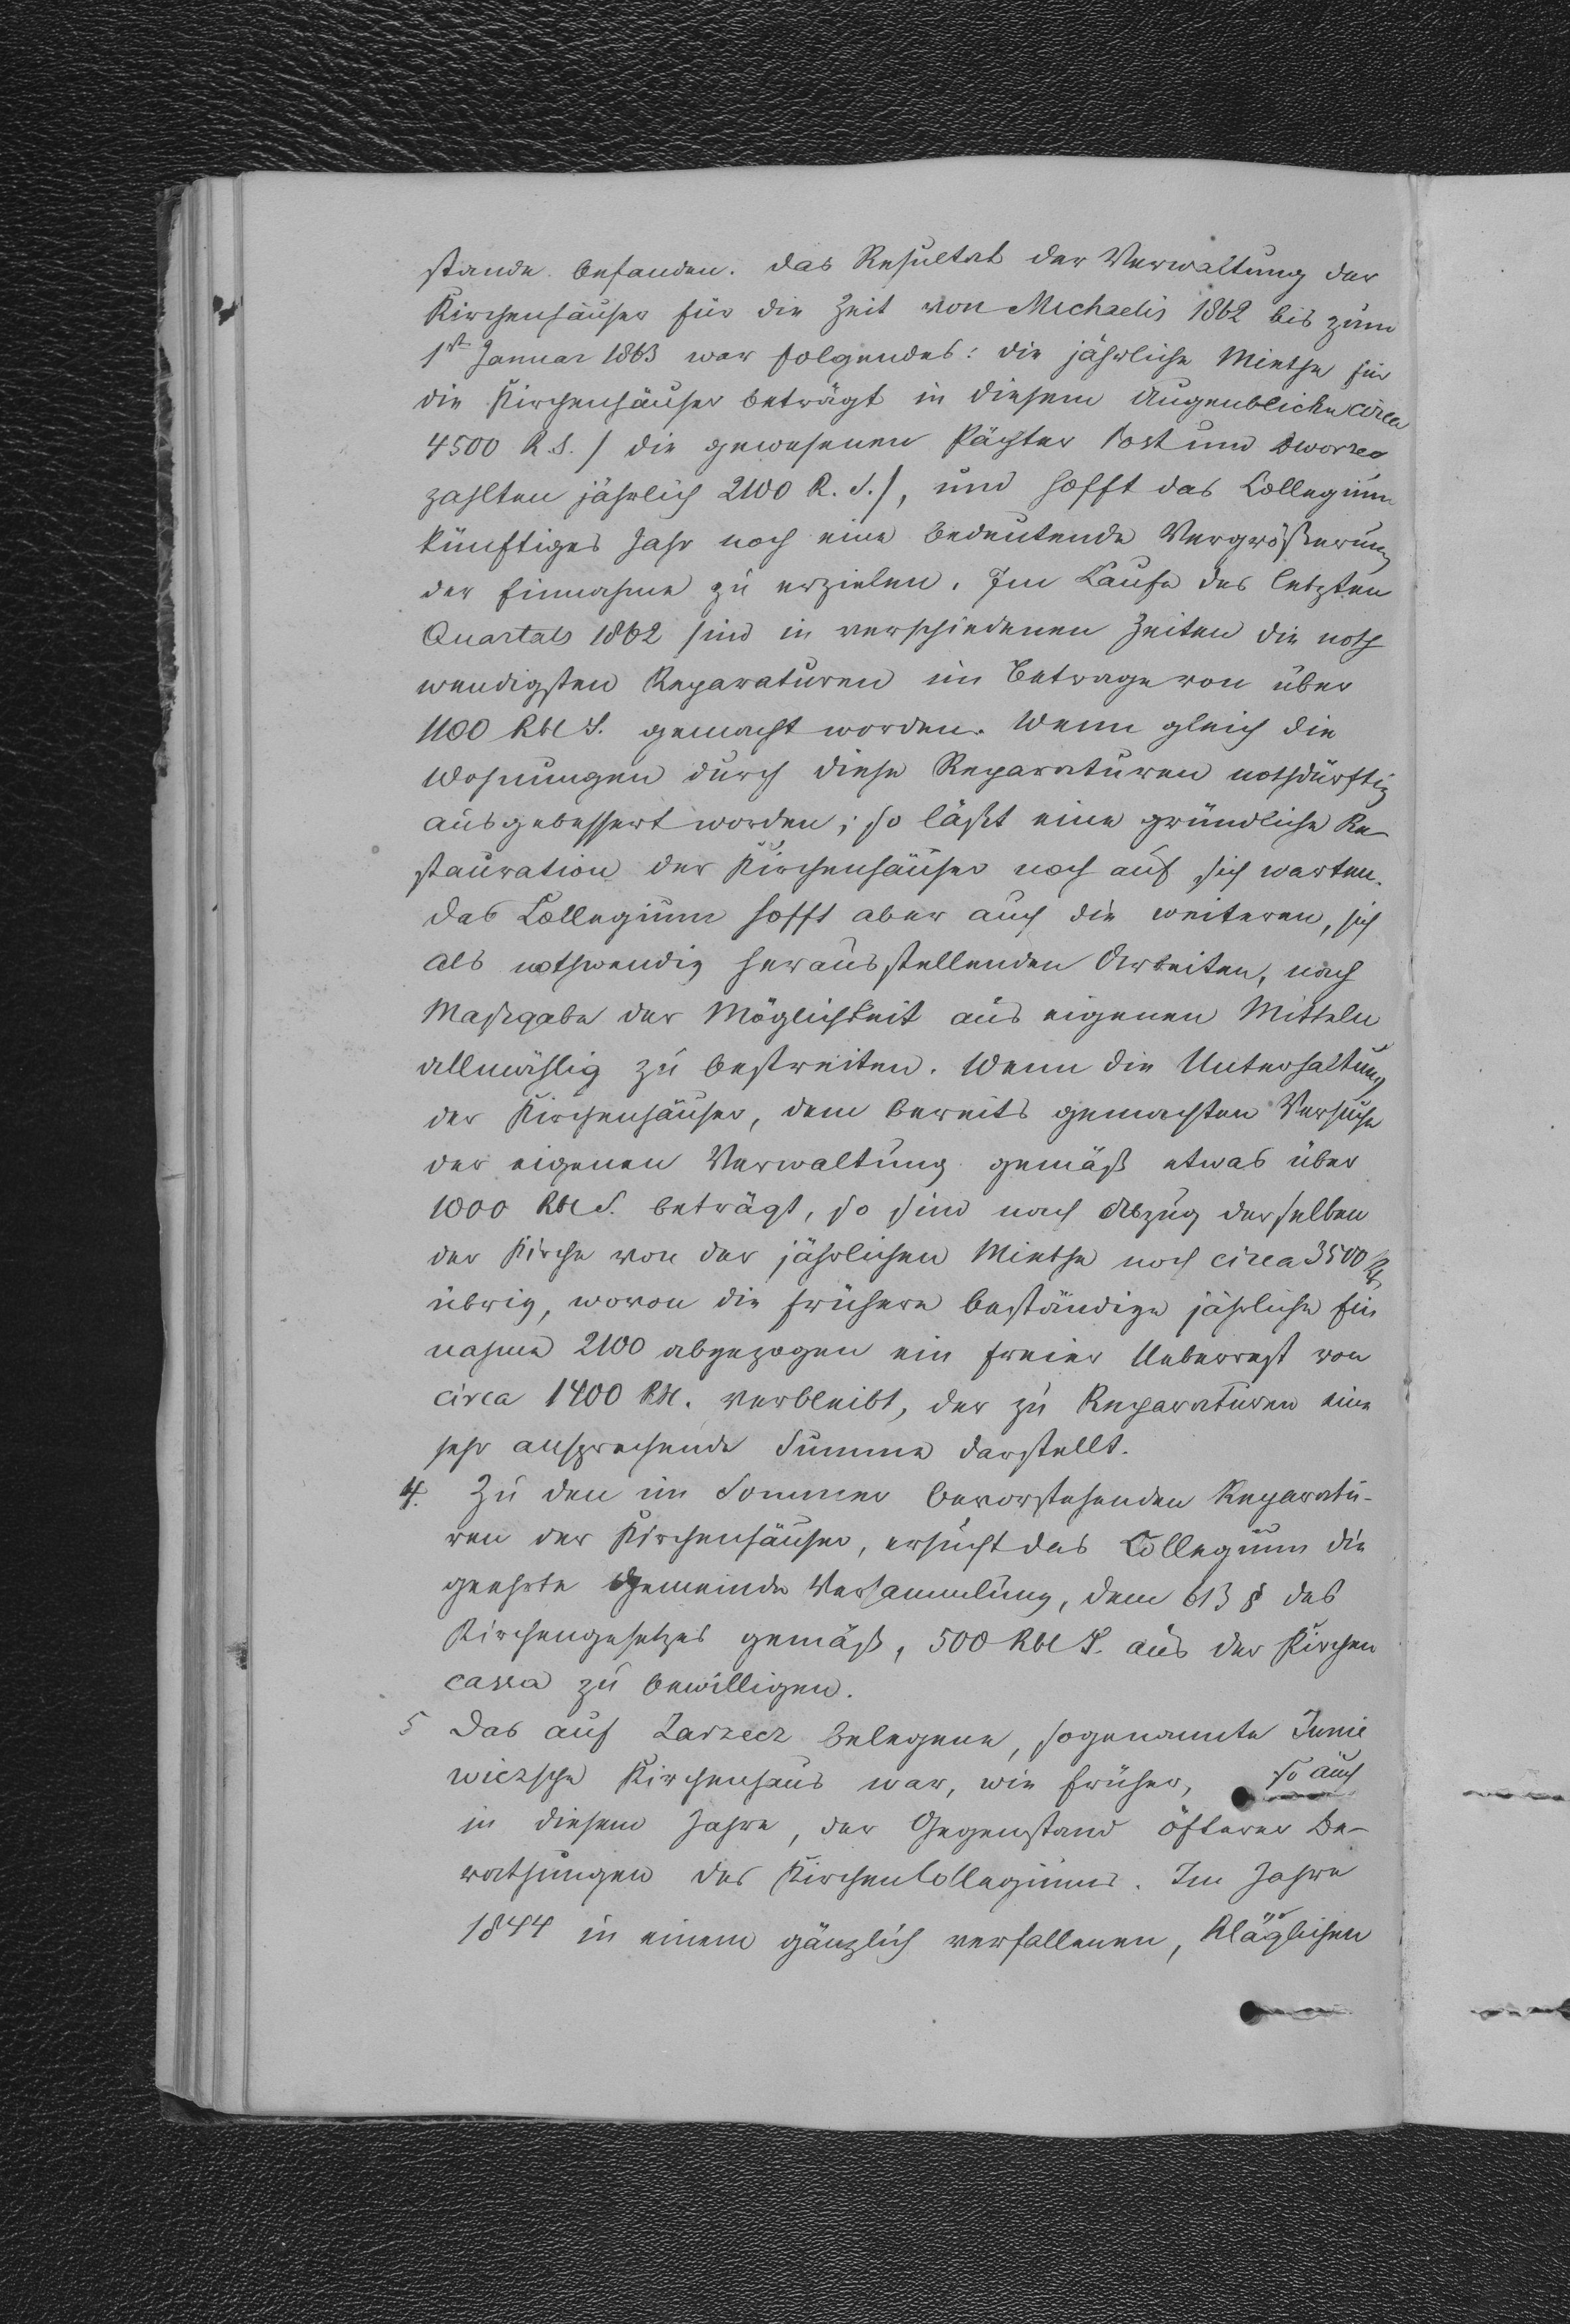 stande befanden. Das Resultat der Verwaltung der
Kirchenhäuser für die Zeit von Michaelis 1862 bis zum
1st Januar 1863 war folgendes: die jährliche Miethe für
die Kirchenhäuser beträgt in diesem Augenblicke circa
4500 R.S. / die gewesenen Pächter Post und Dworzec
zahlten jährlich 2100 R.S./, und hofft das Collegium
künftiges Jahr noch eine bedeutende Vergrößerung
der Einnahme zu erzielen. Im Laufe des letzten
Quartals 1862 sind in verschiedenen Zeiten die noth
wendigsten Reparaturen im Betrage von über
1100 Rbl S. gemacht worden. Wenn gleich die
Wohnungen durch diese Reparaturen nothdürftig
ausgebessert worden; so läßt eine gründliche Re-
stauration der Kirchenhäuser noch auf sich warten.
Das Collegium hofft aber auch die weiteren, sich
als nothwendig herausstellenden Arbeiten, nach
Maßgabe der Möglichkeit aus eigenen Mitteln
allmählig zu bestreiten. Wenn die Unterhaltung
der Kirchenhäuser, dem bereits gemachten Versuche
der eigenen Verwaltung gemäß etwas über
1000 Rbl S. beträgt, so sind nach Abzug derselben
der Kirche von der jährlichen Miethe noch circa 3500 Rb
übrig, wovon die frühere beständige jährliche Ein
nahme 2100 abgezogen ein freier Ueberrest von
circa 1400 Rbl. verbleibt, der zu Reparaturen eine
sehr ansprechende Summe darstellt.
4. Zu den im Sommer bevorstehenden Reparatu-
ren der Kirchenhäuser, ersucht das Collegium die
geehrte Gemeinde Versammlung, dem 613 § des
Kirchengesetzes gemäß, 500 Rbl S. aus der Kirchen
cassa zu bewilligen.
5 Das auf Zarzecz belegene, sogenannte Junie
wiczsche Kirchenhaus war, wie früher, so auch
in diesem Jahre, der Gegenstand öfterer Be-
rathungen des Kirchen Collegiums. Im Jahre
1844 in einem gänzlich verfallenen, kläglichen